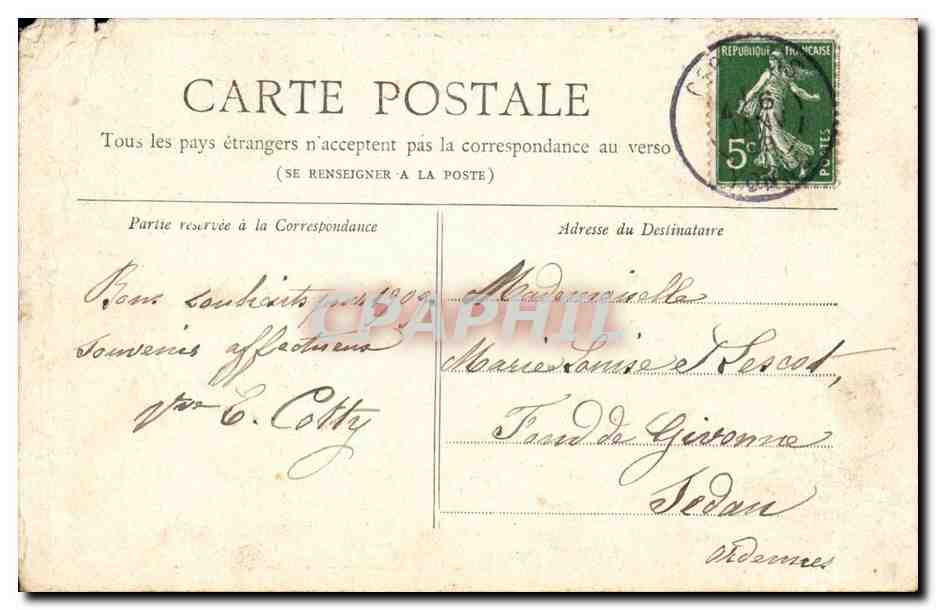 CARTE POSTALE
Tous les pays étrangers n'acceptent pas la correspondance au verso
(SE RENSEIGNER A LA POSTE)
REPUBLIQUE FRANÇAISE
5c
POSTES
Partie réservée à la Correspondance
Bons souhaits pour 1909
Souvenirs affectueux
Vve E. Cotty
Adresse du Destinataire
Mademoiselle
Marie Louise Lescot,
Fond de Givonne
Sedan
Ardennes
CPAPHIL